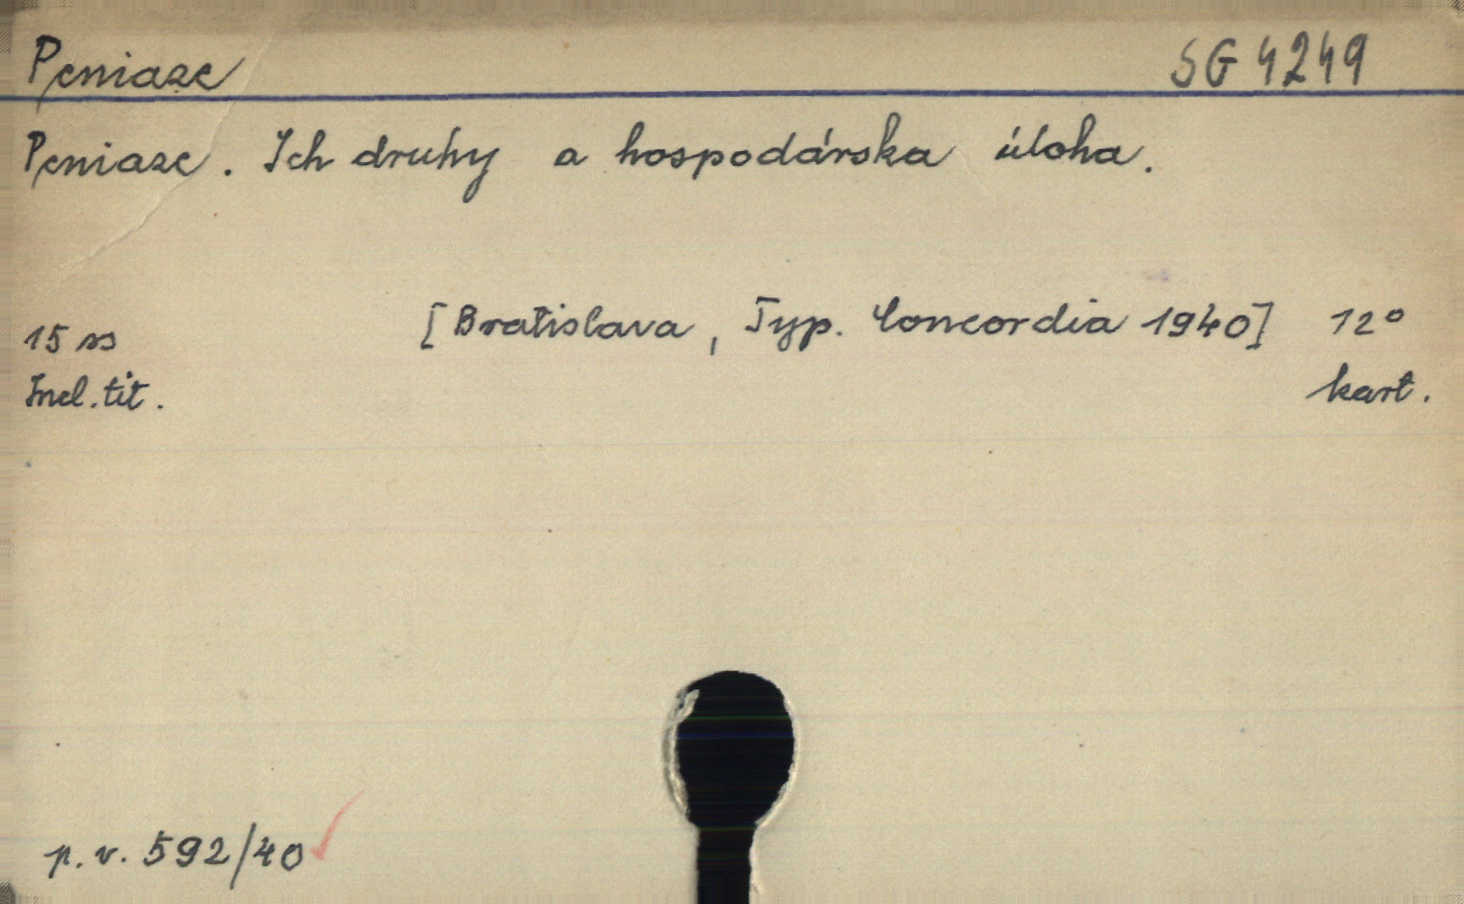 Peniaze SG 4249
Peniaze. Ich druhy a hospodárska úloha.
15 ss [Bratislava, Typ. Concordia 1940] 12°
Incl. tit. kart.
p. v. 592/40